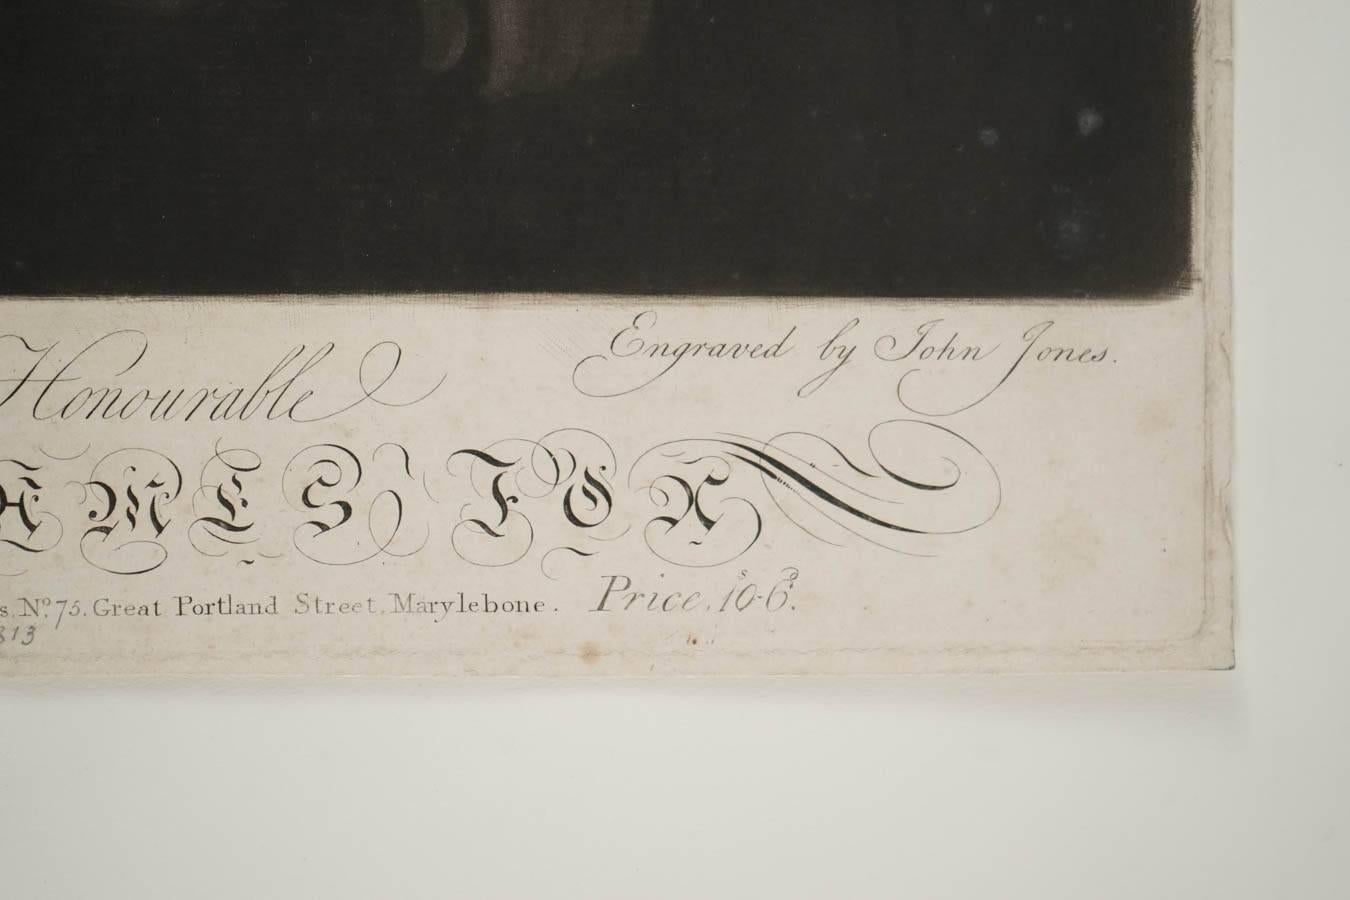 Engraved by John Jones.
Honourable
AMES FOX
s. No. 75. Great Portland Street, Marylebone. Price, 10s-6d.
813